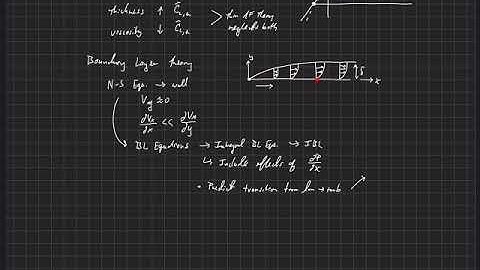 thickness ↑ C̄ₗ,α
viscosity ↓ C̄ₗ,α
> thin AF theory neglects both
Boundary Layer Theory
N-S Eqn. → wall
V_y ≈ 0
∂Vₓ/∂x << ∂Vₓ/∂y
y
δ
x
BL Equations → Integral BL Eqn. → IBL
↳ Include effects of ∂P/∂x
• Predict transition from lam → turb